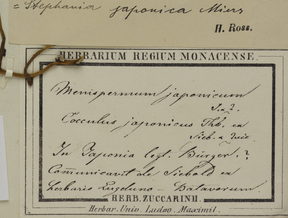 = Stephania japonica Miers
H. Ross.
HERBARIUM REGIUM MONACENSE.
Menispermum japonicum
Cocculus japonicus Thb. ex
Sieb. & Zucc
In Japonia legit. Bürger. ?
Communicavit de Siebold ex
herbario Lugduno-Batavorum.
HERB. ZUCCARINII.
Herbar. Univ. Ludov. Maximil.